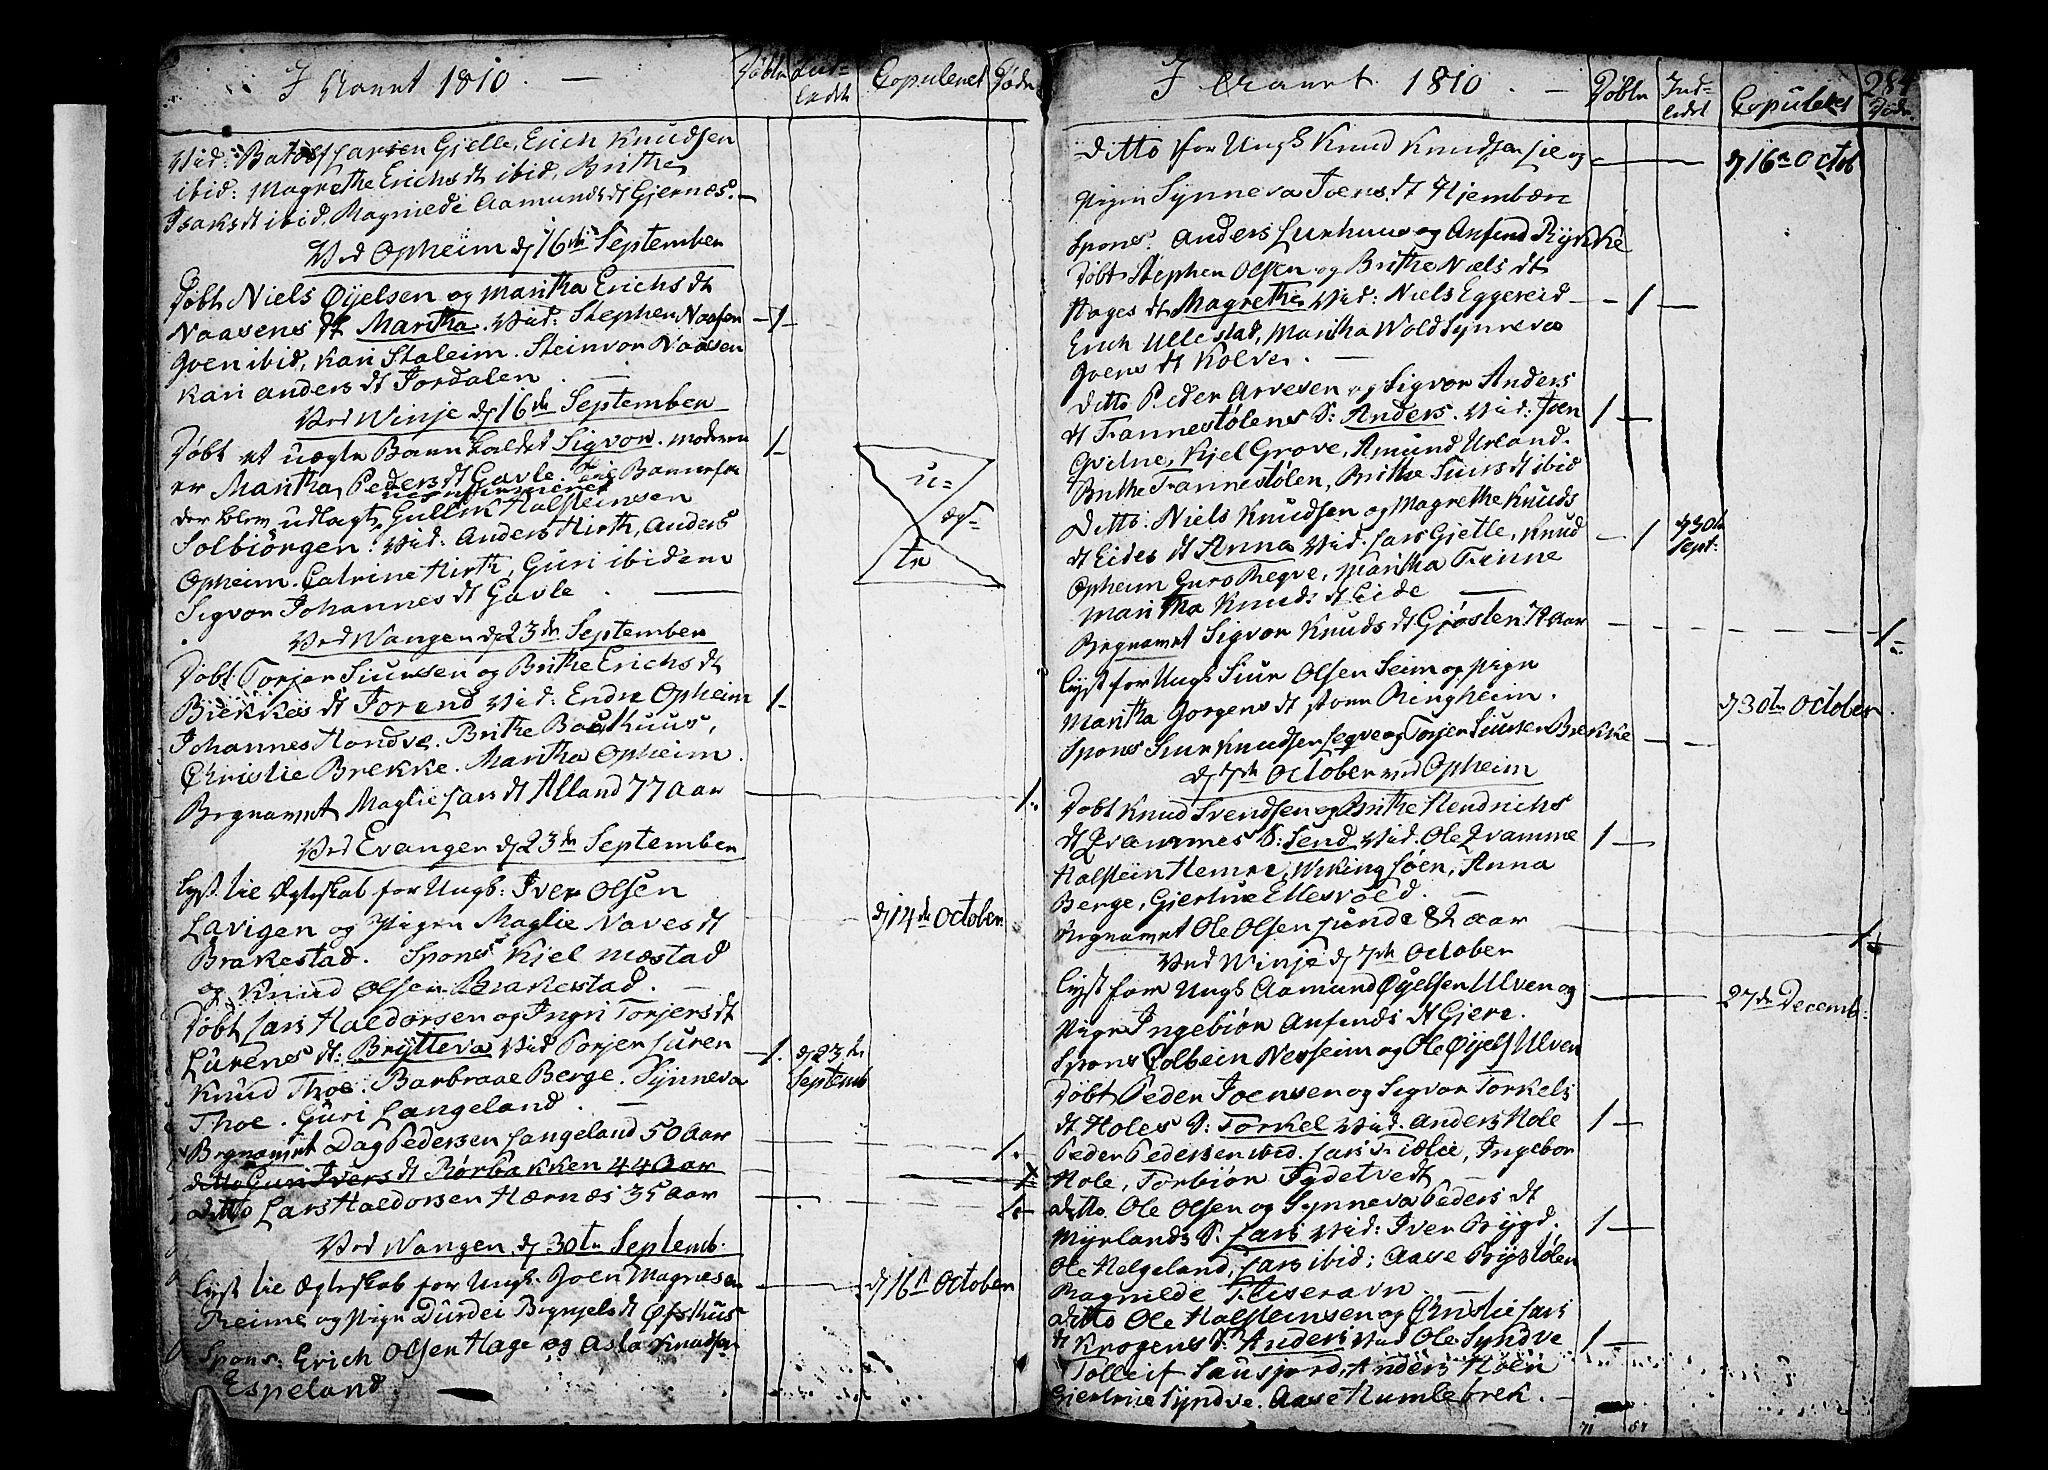 I Aaret 1810. —
Døbte
Ind-
ledet
Copuleret
Døde
Vid: Batolf Larsen Gjelle, Erich Knudsen
ibid: Magrethe Erichs dt ibid, Brithe
Isaks dt ibid. Magniede Aamunds dt Gjernæs. —
Ved Opheim d 16de September
Døbt Niels Øyelsen og Maritha Erichs dt
Naasens dt Maritha. Vid: Stephen Naasen — 1 —
Joen ibid, Kari Staleim. Steinvor Naasen
Kari Anders dt Jordalen. —
Ved Winje d 16de September
Døbt et uægte Barn kaldet Sigvor. Moderen 1 —
er Maritha Peders dt Gavle. til Barnefa
der blev udlagt Gullik Halsteinsen
Solbiörgen. Vid: Anders Hirth, Anders
Opheim. Catrine Hirth, Guri ibidem
Sigvor Johannes dt Gavle. —
u-
æg-
te
Ved Wangen d 23de September
Døbt Torjer Siursen og Brithe Erichs dt
Brekkes dt Jorand Vid: Endre Opheim 1 —
Johannes Hondve. Brithe Bakkuus,
Christie Brekke. Maritha Opheim.
Begravet Maglie Lars dt Alland 77 Aar — 1.
Ved Evanger d 23de September
Lyst til Ægteskab for Ungk: Iver Olsen
Lavigen og Pigen Maglie Naves dt d 14de October
Brakestad. Spons Kjel Mæstad
og Knud Olsen Brakestad. —
Døbt Lars Haldorsen og Ingri Torjers dt
Lurenes dt: Brytteva Vid Torjer Luren — 1. d 23de
Septemb
Knud Thoe. Barbraae Berge. Synneva
Thoe. Guri Langeland. —
Begravet Dag Pedersen Langeland 50 Aar — 1.
ditto Guri Ivers dt Rørbakken 44 Aar
ditto Lars Haldorsen Hærnæs 35 Aar — 1. —
Ved Wangen d 30te Septemb.
Lyst til Ægteskab for Ungk. Joen Magnesen — d 16d October
Reime og Pige Durdei Brynjels dt Øfsthus
Spons. Erich Olsen Hage og Asla Knudsen
Espeland.
I Aaret 1810. —
284
Døbte
Ind-
ledet
Copuleret
Døde
Ditto for Ungk Knud Knudsen Lie og — d 16de Octob
Pigen Synneva Joens dt Hjembæn
Spons. Anders Lurhuus og Anfind Rykke
Døbt Stephen Olsen og Brithe Niels dt
Hages dt Magrethe Vid: Niels Eggereid — 1 —
Erich Ullestad, Maritha Wold Synneva
Joens dt Kolve. —
Ditto Peder Arvesen og Sigvor Anders
dt Fannestølens S: Anders. Vid: Joen 1 —
Qvitne, Kjel Grove, Amund Urland.
Brithe Fannestølen, Brithe Siurs dt ibid
Ditto. Niels Knudsen og Magrethe Knuds
dt Eides dt Anna Vid. Lars Gjelle, Knud — 1 d 30te
Sept:
Opheim Guro Regve, Maritha Finne
Maritha Knuds dt Eide —
Begravet Sigvor Knuds dt Gjøsten 74 Aar — 1 —
Lyst for Ungk Siur Olsen Seim og Pige
Maritha Jorgens dt store Ringheim. d 30te October
Spons Siur Knudsen Legve og Torjer Siursen Brekke —
d 7de October ved Opheim
Døbt Knud Svendsen og Brithe Hendrichs
dt Qvammes S: Send Vid. Ole Qvamme 1 —
Halstein Hemre, Wiking Løen, Anna
Berge, Gjertrue Ellesvold. —
Begravet Ole Olsen Lunde 82 Aar — 1 —
Ved Winje d 7de October
Lyst for Ungk Aamund Øyelsen Ulven og — 27de Decemb.
Pige Ingebiör Anfinds dt Gjere.
Spons Colbein Nesheim og Ole Øyels Ulven
Døbt Peder Joensen og Sigvor Torkels
dt Holes S: Torkel Vid. Anders Hole 1 —
Peder Pedersen ibid. Lars Fidlie, Ingebor
Hole, Torbiör Tydetvedt —
ditto. Ole Olsen og Synneva Peders dt
Myrlands S. Lars Vid: Iver Brygd. 1 —
Ole Helgeland, Lars ibid; Aase Brystølen
Ragniede Fliseravn. —
ditto Ole Halsteinsen og Christie Lars
dt Krogens S. Anders Vid Ole Syndve 1 —
Tolleif Sausjord, Anders Hoen
Gjertrue Syndve. Aase Humlebrek. —
71 57